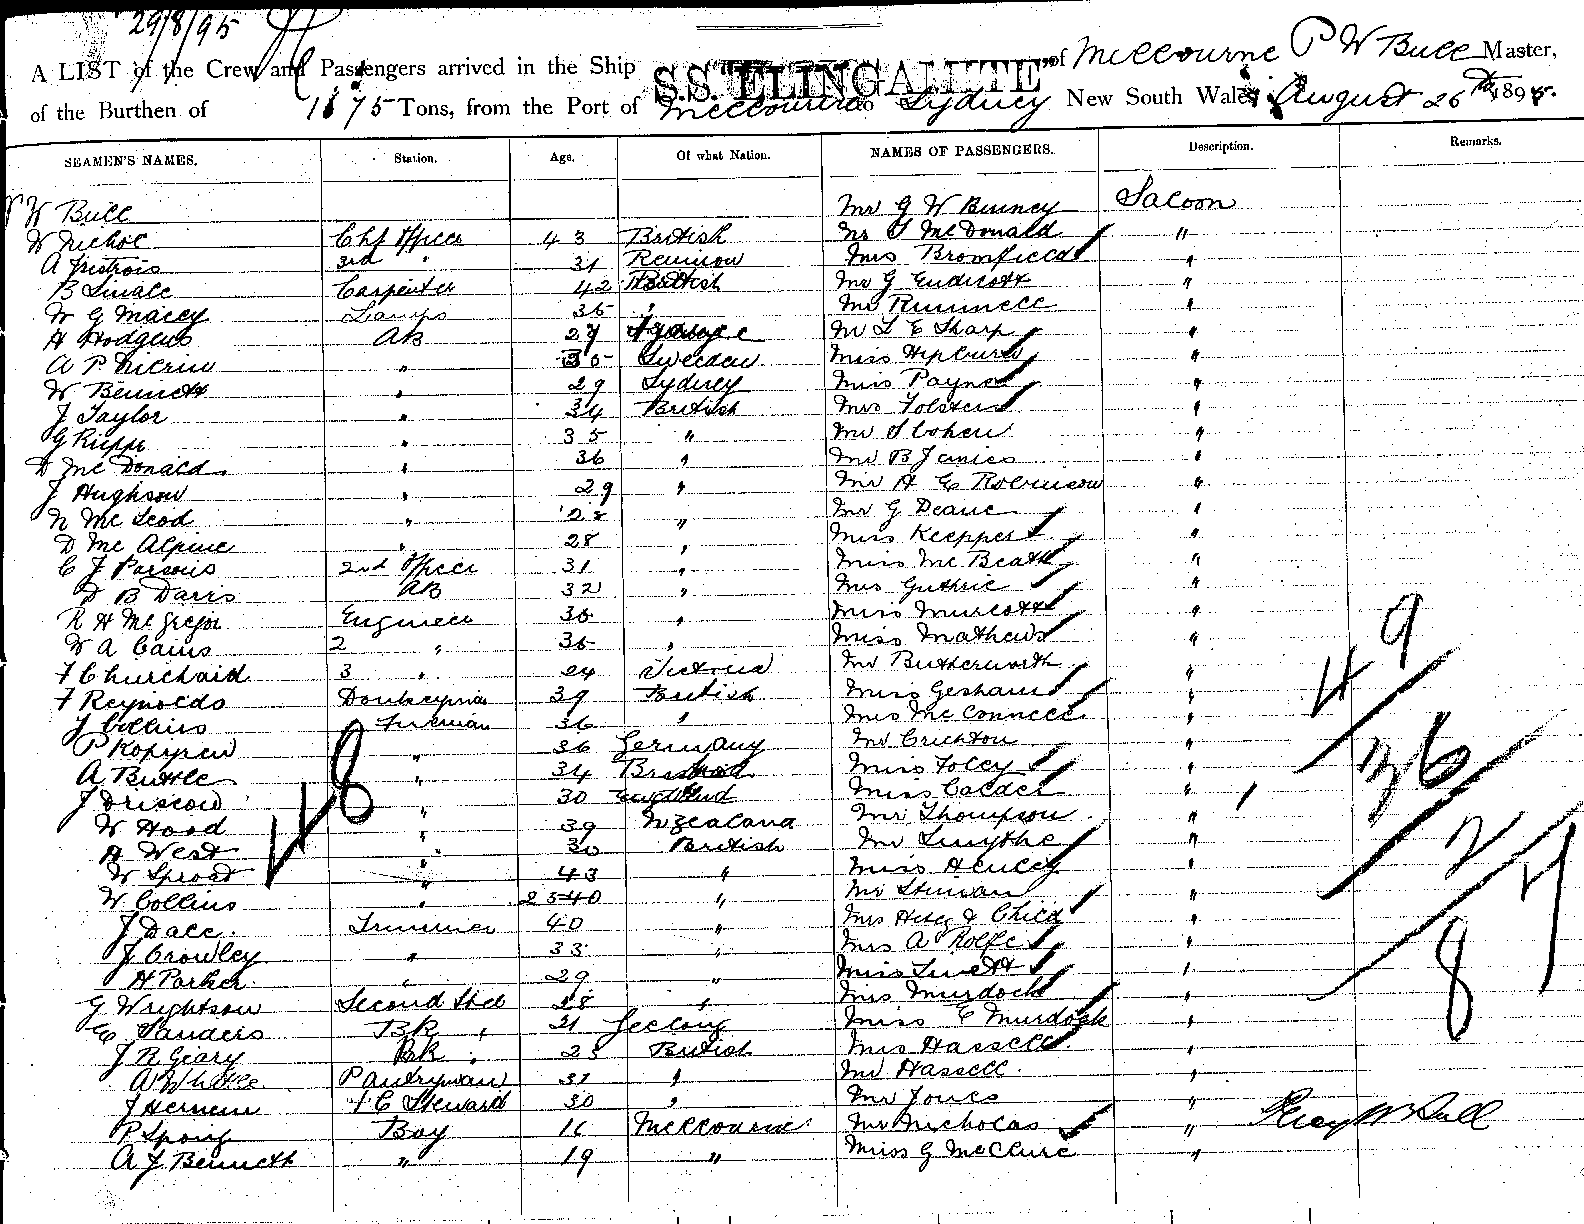 29/8/95
A LIST of the Crew and Passengers arrived in the Ship S.S. "ELINGAMITE" of Melbourne P W Bull Master,
of the Burthen of 1675 Tons, from the Port of Melbourne to Sydney New South Wales, August 26th 1895.
SEAMEN'S NAMES. Station. Age. Of what Nation. NAMES OF PASSENGERS. Description. Remarks.
P W Bull Mr G W Binney Saloon
W Nichol Chf Officer 43 British Mr McDonald "
A 3rd " 31 Reunion Mrs Bromfield "
B Carpenter 42 British Mr G Endicott "
W G Macey Lamps 36 " Mr Rummell "
H Hodgens AB 27 Mr L E Sharp "
A P " 30 Sweden Miss Hepburn "
W Bennett " 29 Sydney Miss Payne "
J Taylor " 34 British Mrs "
G " 35 " Mr S Cohen "
D McDonald " 36 " Mr B James "
J Hughson " 29 " Mr H E Robinson "
N McLeod " 28 " Mr G Deane "
D McAlpine " 28 " Miss Keppert "
C J Parsons 2nd Officer 31 " Miss McBeath "
D B Darrs AB 32 " Mrs Guthrie "
R H McGregor Engineer 36 " Miss Murcott "
W A Cains 2 " 36 " Miss Mathews "
F Churchard 3 " 24 Victoria Mr Butterworth "
F Reynolds Donkeyman 39 British Miss Gesham "
J Collins Fireman 36 " Mrs McConnell "
P " 36 Germany Mr Crichton "
A Buttle " 34 Miss Foley "
J Driscoll " 30 England Miss Calder "
W Hood " 39 N Zealand Mr Thompson "
H West " 30 British Mr Smythe "
W Sproat " 43 " Miss Henley "
W Collins " 40 " "
J Dale Trimmer 40 " Mrs & Child "
J Crowley " 33 " Mrs A Rolfe "
H Parker " 29 " Miss "
G Wrightson Second Std 28 " Mrs Murdoch "
E Sanders BK " 21 Geelong Miss E Murdoch "
J R Geary BK " 25 British Mrs Hassell "
A Pantryman 31 " Mr Hassell "
J F C Steward 30 " Mr Jones "
P Boy 16 Melbourne Mr Nicholas "
A J Bennett " 19 " Miss G McClure "
9
36
8